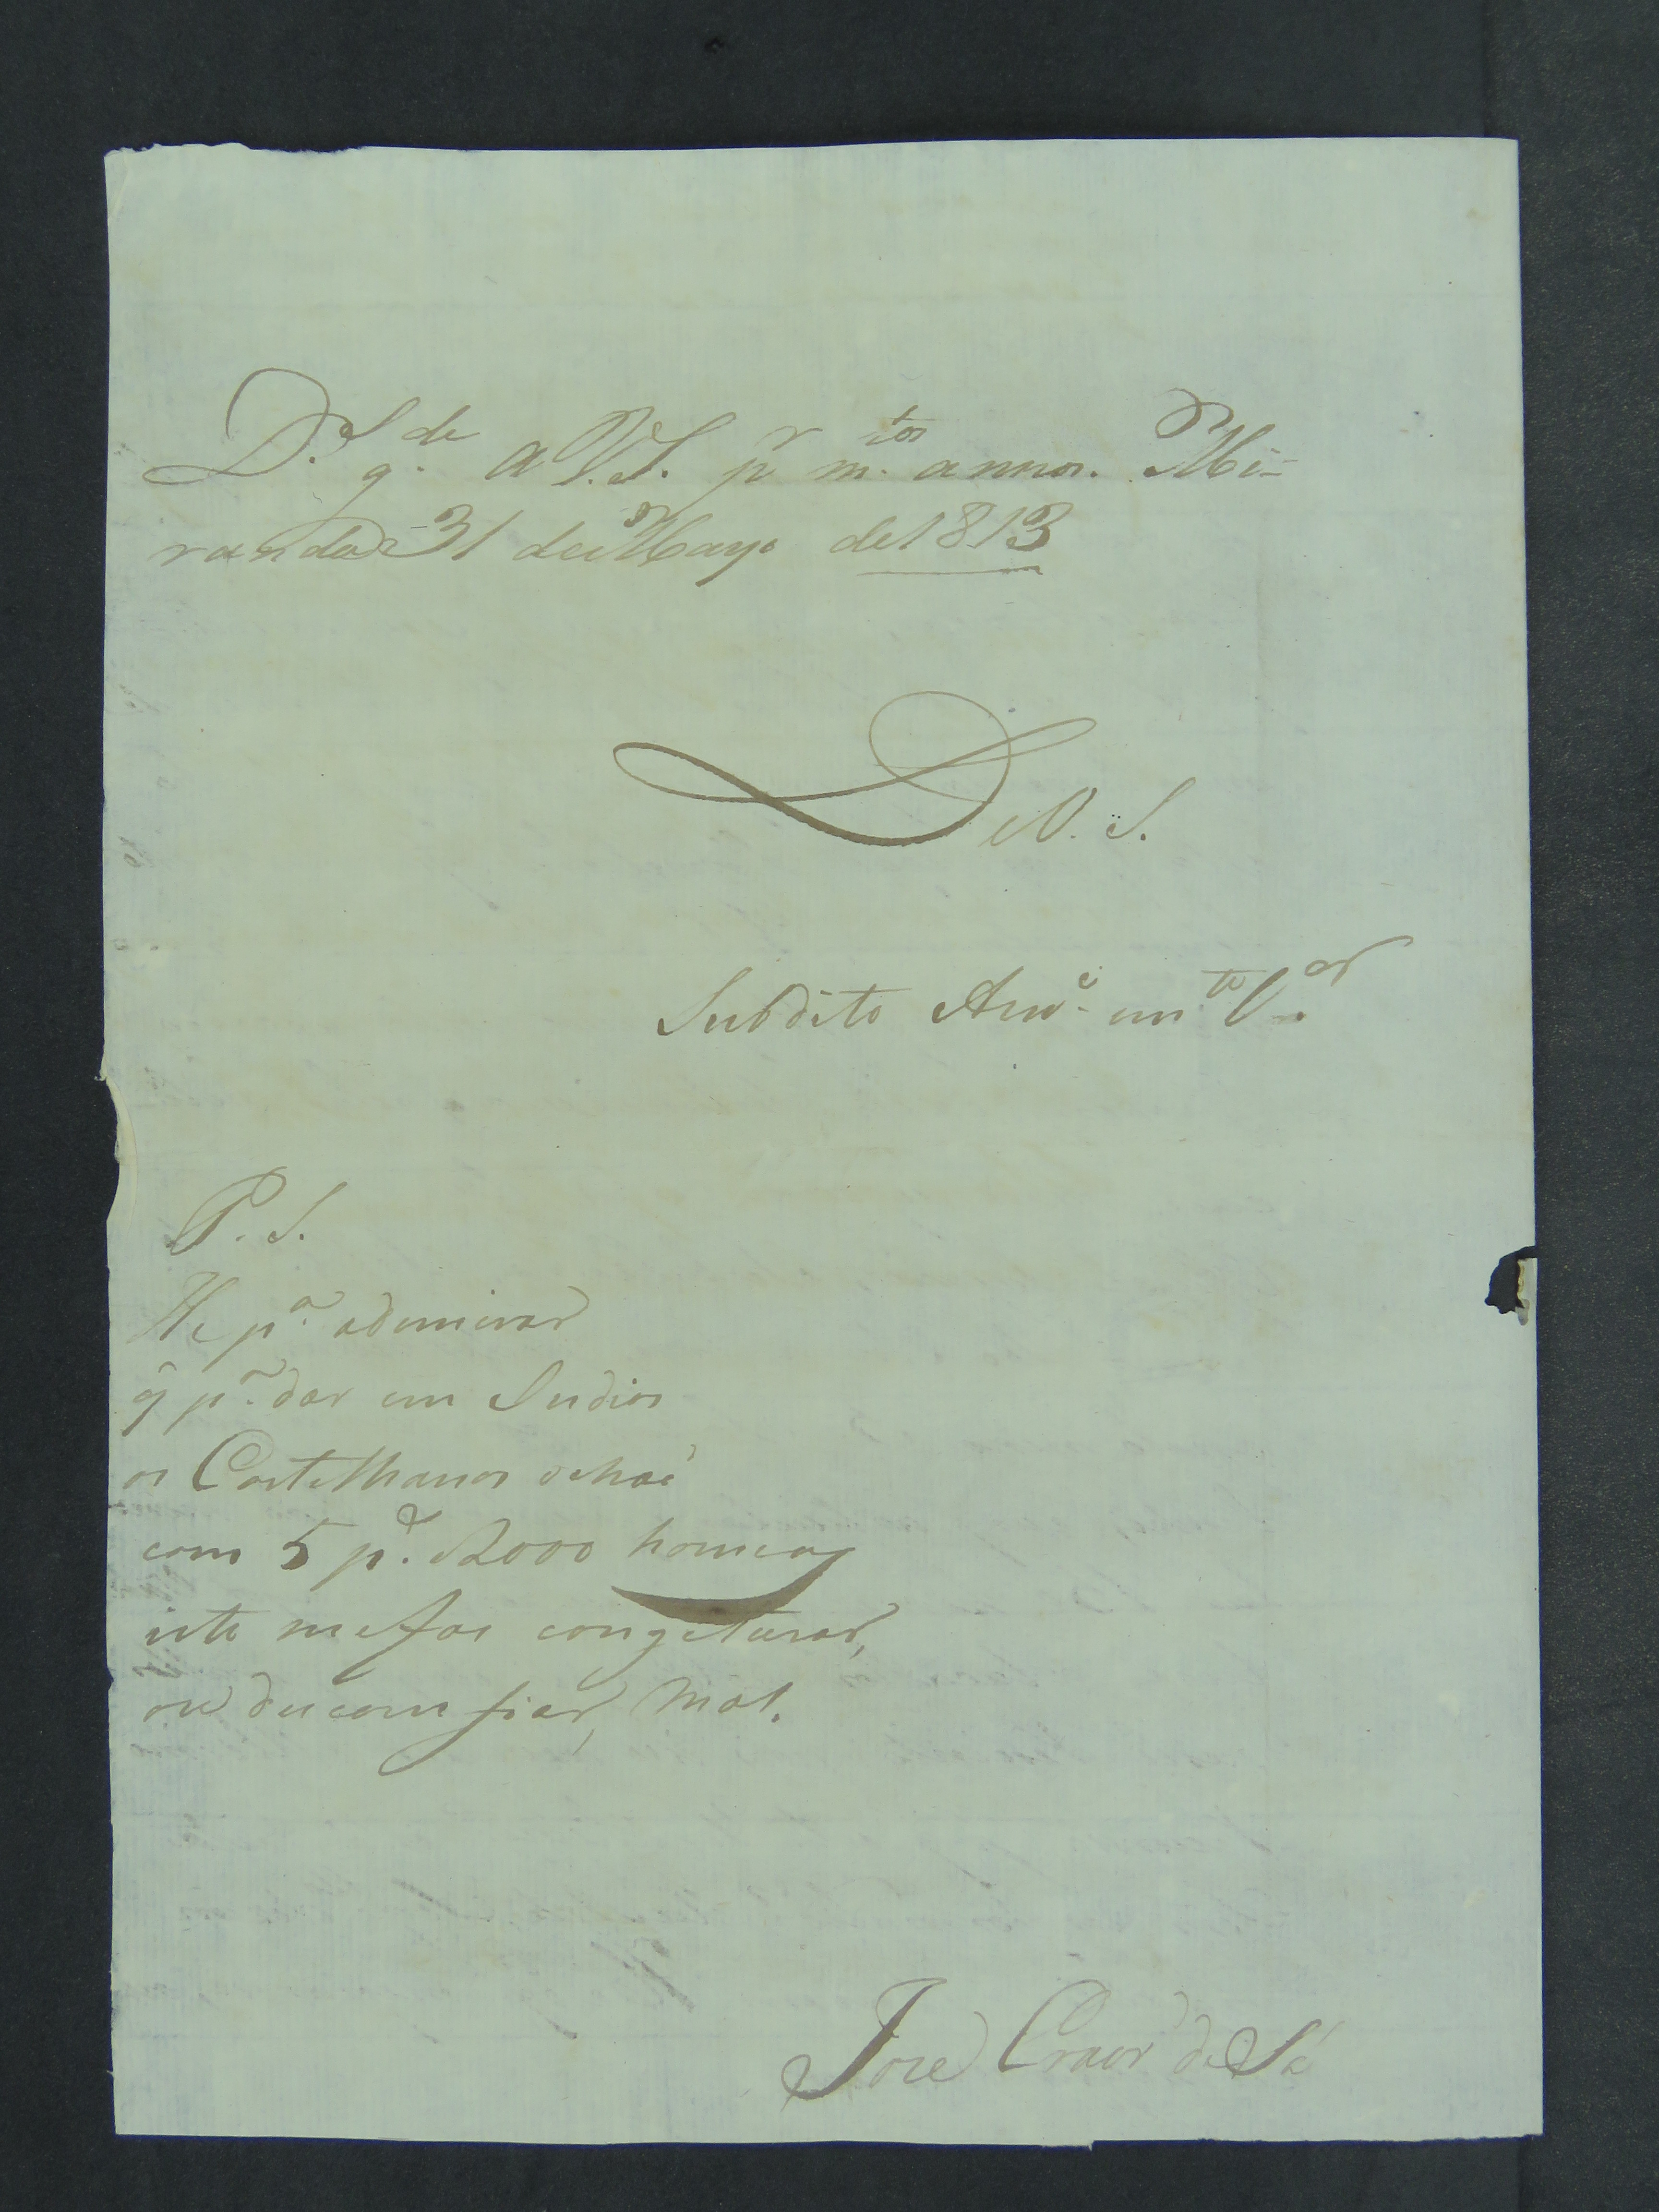 D.s g.de a V.S. p.r m.tos annos. Mi-
randa 31 de Mayo de 1813
De V. S.
Subdito At.e
P. S.
He p.a admirar
q̃ p.a dar em Indios
os Castelhanos
com 5 p.a 2000 homens
isto me fas congeturar,
ou descomfiar, mal.
Joze Cravr.o de Sá